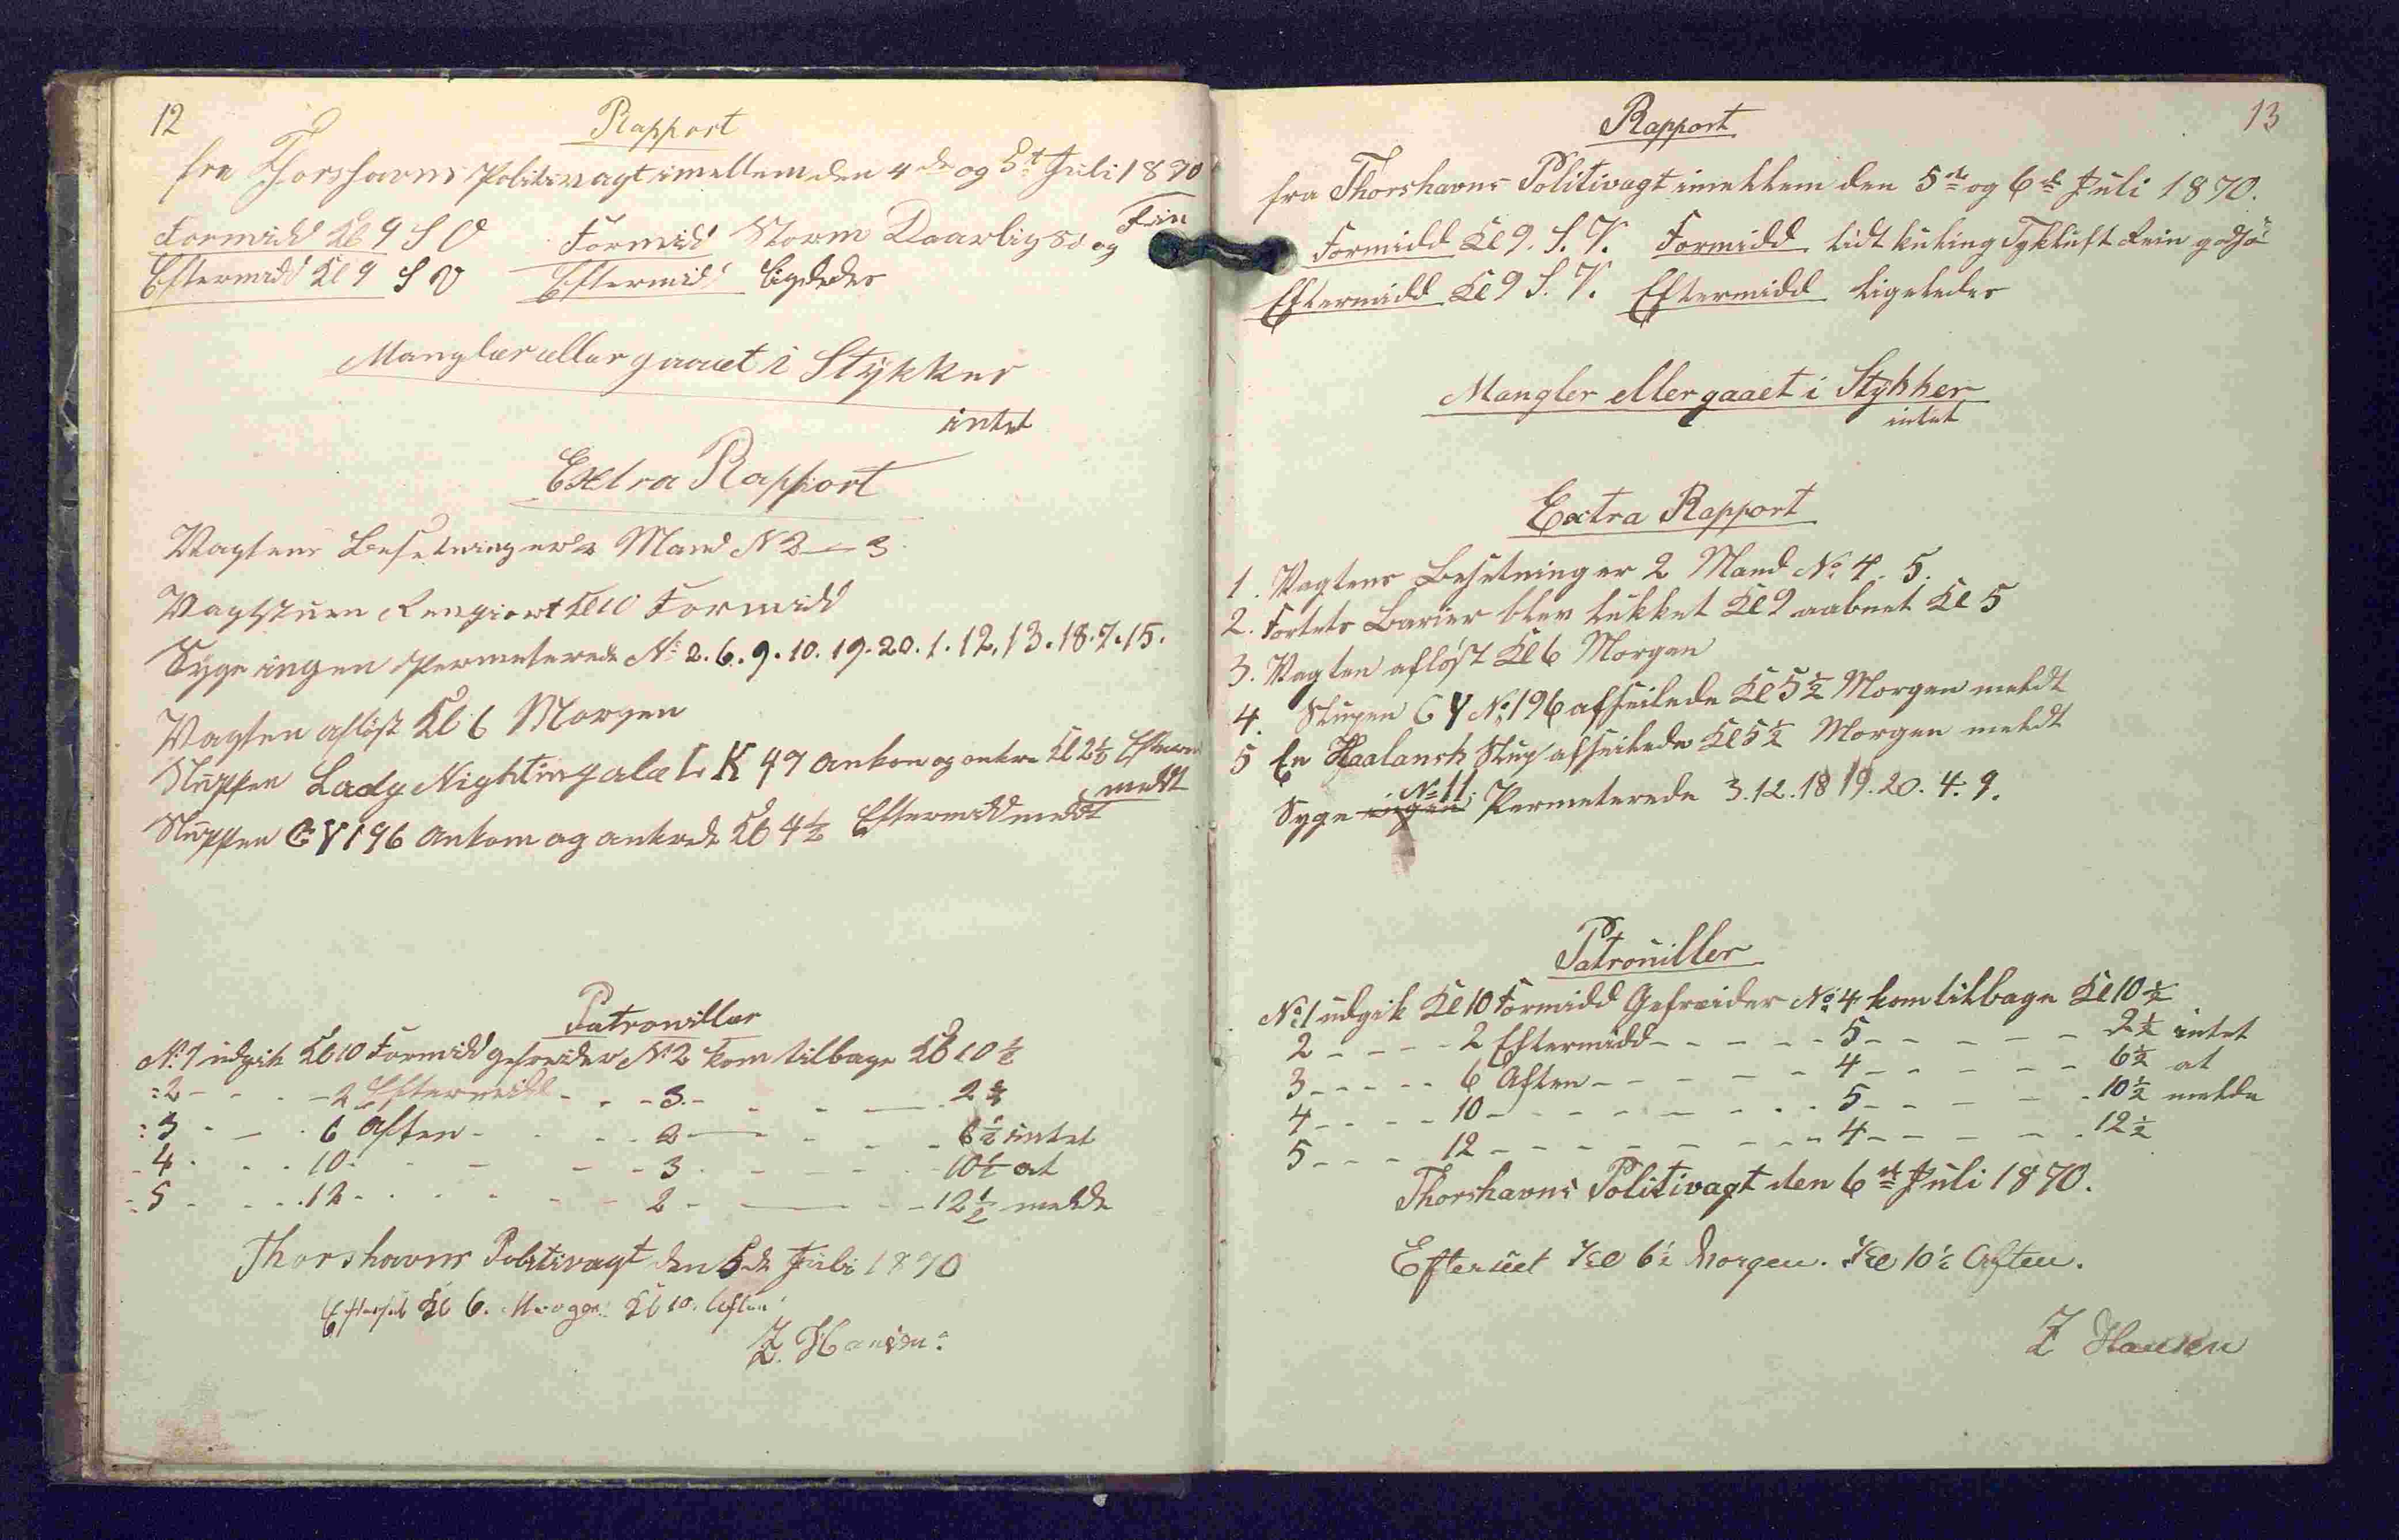 12
Rapport
fra Thorshavns Politivagt imellem den 4de og 5t Juli 1870
Formidd Kl 9 S V Formidd Storm Daarlig So og
Eftermidd Kl 9 S V Eftermid ligeledes
Mangler eller gaaet i Stykker
intet
Extra Rapport
Vagtens Besetning er 2 Mand N 2 - 3
Vagtstuen Rengiort Kl 10 Formidd
Syge ingen Permeterede No 2. 6. 9. 10. 19. 20. 1. 12. 13. 18. 7. 15.
Vagten afløst Kl 6 Morgen
Sluppen Lady Nightingale L K 47 Ankom og ankre Kl 2½ Efterm
meldt
Sluppen G Y 196 Ankom og ankrede Kl 4½ Eftermidd meldt
Patrouiller
No 1 udgik Kl 10 Formidd gefreider No 2 kom tilbage Kl 10½
2 - - - 2 Eftermidd - - - 3 - - - 2½
3 - - - 6 Aften - - - 2 - - - 6½ intet
4 - - - 10 - - - 3 - - - 10½ at
5 - - - 12 - - - 2 - - - 12½ melde
Thorshavns Politivagt den 5de Juli 1870
Efterset Kl 6. Morgen Kl 10. Aften
Z. Hansen.
13
Rapport
fra Thorshavns Politivagt imellem den 5te og 6te Juli 1870.
Formidd Kl 9. S. V. Formidd lidt kuling Tykluft Rein god Sö
Eftermidd Kl 9 S. V. Eftermidd ligeledes
Mangler eller gaaet i Stykker
intet
Extra Rapport
1. Vagtens Besetning er 2 Mand No 4. 5.
2. Fortets Barier blev lukket Kl 9 aabnet Kl 5
3. Vagten afløst Kl 6 Morgen
4. Slupen G Y No 196 afseilede Kl 5½ Morgen meldt
5 En Haalansk Slup afseilede Kl 5½ Morgen meldt
Syge ingen No 11. Permeterede 3. 12. 18 19. 20. 4. 9.
Patrouiller
No 1 udgik Kl 10 Formidd Gefreider No 4 kom tilbage Kl 10½
2 - - - 2 Eftermidd - - - 5 - - - 2½ intet
3 - - - 6 Aften - - - 4 - - - 6½ at
4 - - - 10 - - - 5 - - - 10½ melde
5 - - - 12 - - - 4 - - - 12½
Thorshavns Politivagt den 6te Juli 1870.
Efterseet Kl 6½ Morgen. Kl 10½ Aften.
Z Hansen